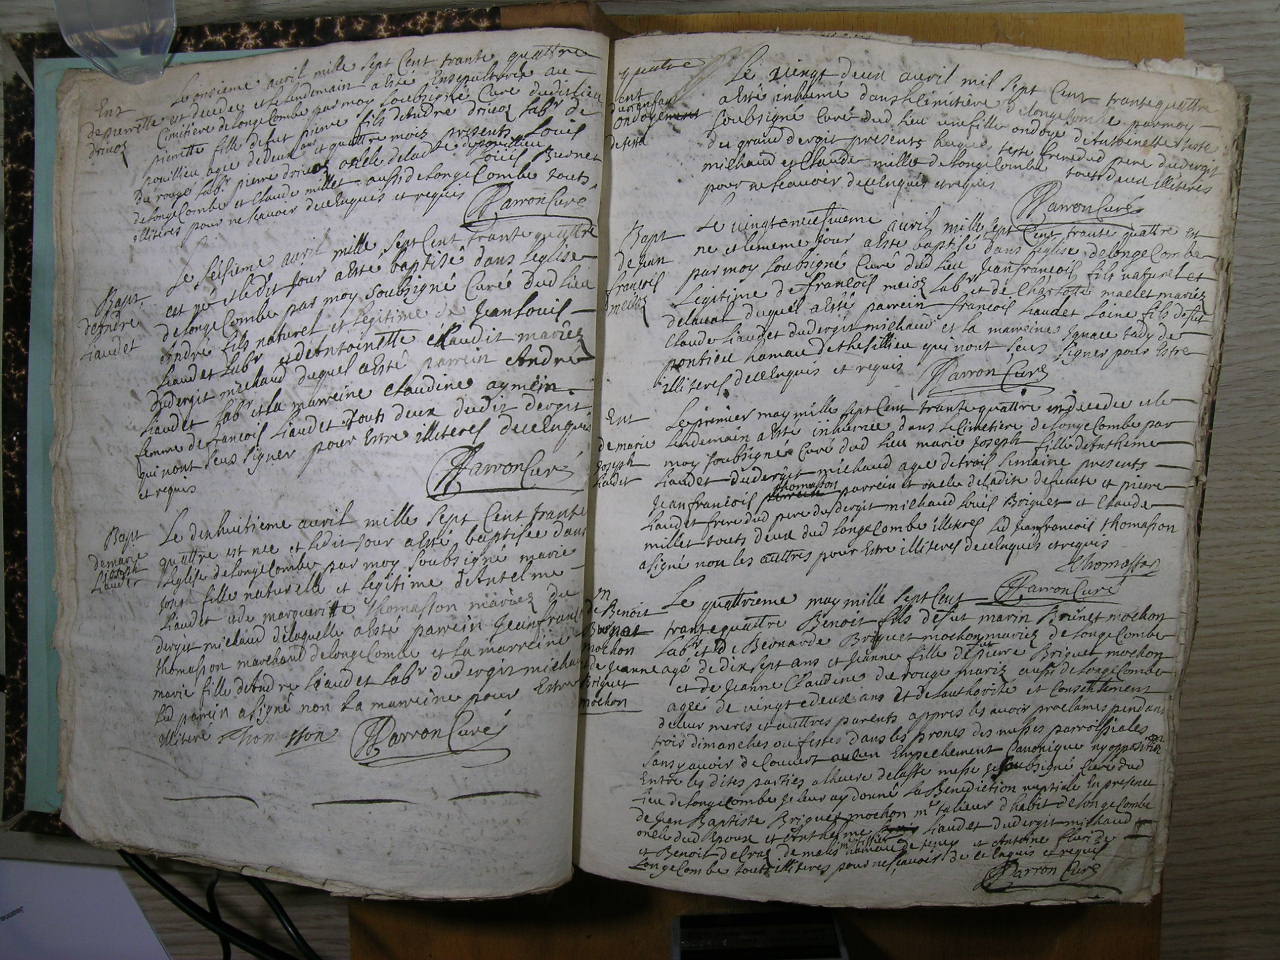 Le onsieme avril mille sept Cent trante quattre
Ent
de pierrette
drinoz
est decedez et le lendemain a esté Ensepulturée au
Cimitiere de longeCombe par moy soubsigné Curé dud lieu
pierrette fille de fut pierre fils de andre drinoz labr de
rouillieu agée de deux ans et quattre mois presents Louis
du rouge labr pierre drinoz oncle de ladte Louis Burnet
de longeCombe et Claude millet aussi de longeCombe touts
illiteres pour ne scavoir de ce Enquis et requis
Carron Curé
Bapt
d'andre
Liaudet
Le seisieme avril mille sept Cent trante quattre
est né et ledit Jour a esté baptisé dans leglise
de longeCombe par moy soubsigné Curé dud Lieu
andré fils naturel et legitime de Jean louis
Liaudet labr et d'antoinette Claudit mariéz
du dergit michaud duquel a esté parrein André
Liaudet labr et la marreine Claudine aymein
femme de francois Liaudet touts deux dudit dergit
qui nont sceus signer pour Estre illiteres de ce Enquis
et requis
Carron Curé
Bapt
de marie
Joseph
Liaudet
Le dix huitieme avril mille sept Cent trante
quattre est née et ledit Jour a esté baptisée dans
leglise de longeCombe par moy soubsigné marie
Joseph fille naturelle et legitime d'Antelme
Liaudet et de margueritte Thomasson mariéz du
dergit michaud de laquelle a esté parrein Jean francois
thomasson marchand de longeCombe et la marreine
marie fille d'andré Liaudet labr du dergit michaud
Led parrein a signé non la marreine pour Estre
illitere Thomasson
Carron Curé
quattre
Le vingt deux avril mil sept Cent trante quattre
a esté inhumé dans le Cimitiere de longeCombe par moy
soubsigné Curé dud Lieu une fille ondoyé d'antoinette teste
du grand dergit presents hugues teste frere dud pere du dergit
michaud et Claude millet de longeCombe touts deux illiteres
pour ne scavoir de ce Enquis et requis
Carron Curé
Bapt
de Jean
francois
meiloz
Le vingt neufvieme avril mille sept Cent trante quattre est
né et le meme Jour a esté baptisé dans leglise de longeCombe
par moy soubsigné Curé dud Lieu Jean francois fils naturel et
Legitime de francois labr et de Charlotte mallet mariéz
de lavant duquel a esté parrein francois Liaudet Laine fils de fut
Claude Liaudet du dergit michaud et la marreine Ignace tady de
pontieu hamau de thesillieu qui nont sceus signer pour Estre
illiteres de ce Enquis et requis
Carron Curé
Ent
de marie
Joseph
Liaudet
Le premier may mille sept Cent trante quattre est decedée et le
Lendemain a esté inhumée dans le Cimetiere de longeCombe par
moy soubsigné Curé dud Lieu marie Joseph fille d'antheme
Liaudet du dergit michaud agé de trois semaine presents
Jean francois thomasson parrein et oncle de ladite defunte et pierre
Liaudet frere dud pere du dergit michaud louis Briguet et Claude
millet touts deux dud longeCombe illiteres Led Jean francois thomasson
a signé non les auttres pour Estre illiteres de ce Enquis et requis
Thomasson
Carron Curé
de Benoit
Burnat
mochon
et de Jeanne
Briguet
mochon
Le quattrieme may mille sept Cent
trante quattre Benoit fils de fut marin Brunet mochon
labr et de Bernarde Briguet mochon mariéz de longeCombe
agé de dix sept ans et Jeanne fille de pierre Briguet mochon
et de Jeanne Claudine du rouge mariez aussi de longeCombe
agée de vingt e deux ans et de lauthorité et Consentement
de leur meres et auttres parents appres les avoir proclamés pendant
trois dimanches ou festes dans les prones des messes parroissiales
sans y avoir decouvert aucun Empechement Canonique ny opposition
Entre les dites parties a lheure de laste messe Je soubsigné Curé dud
Lieu de longeCombe Je leur ay donné la Benediction nuptiale En presence
de Jean Baptiste Briguet mochon mre talieur d'habit de longeCombe
oncle dud Epoux et d'antheme Liaudet du dergit michaud
et Benoit de hameau de et Antoine de
LongeCombe touts illiteres pour ne scavoir de ce Enquis et requis
Carron Curé